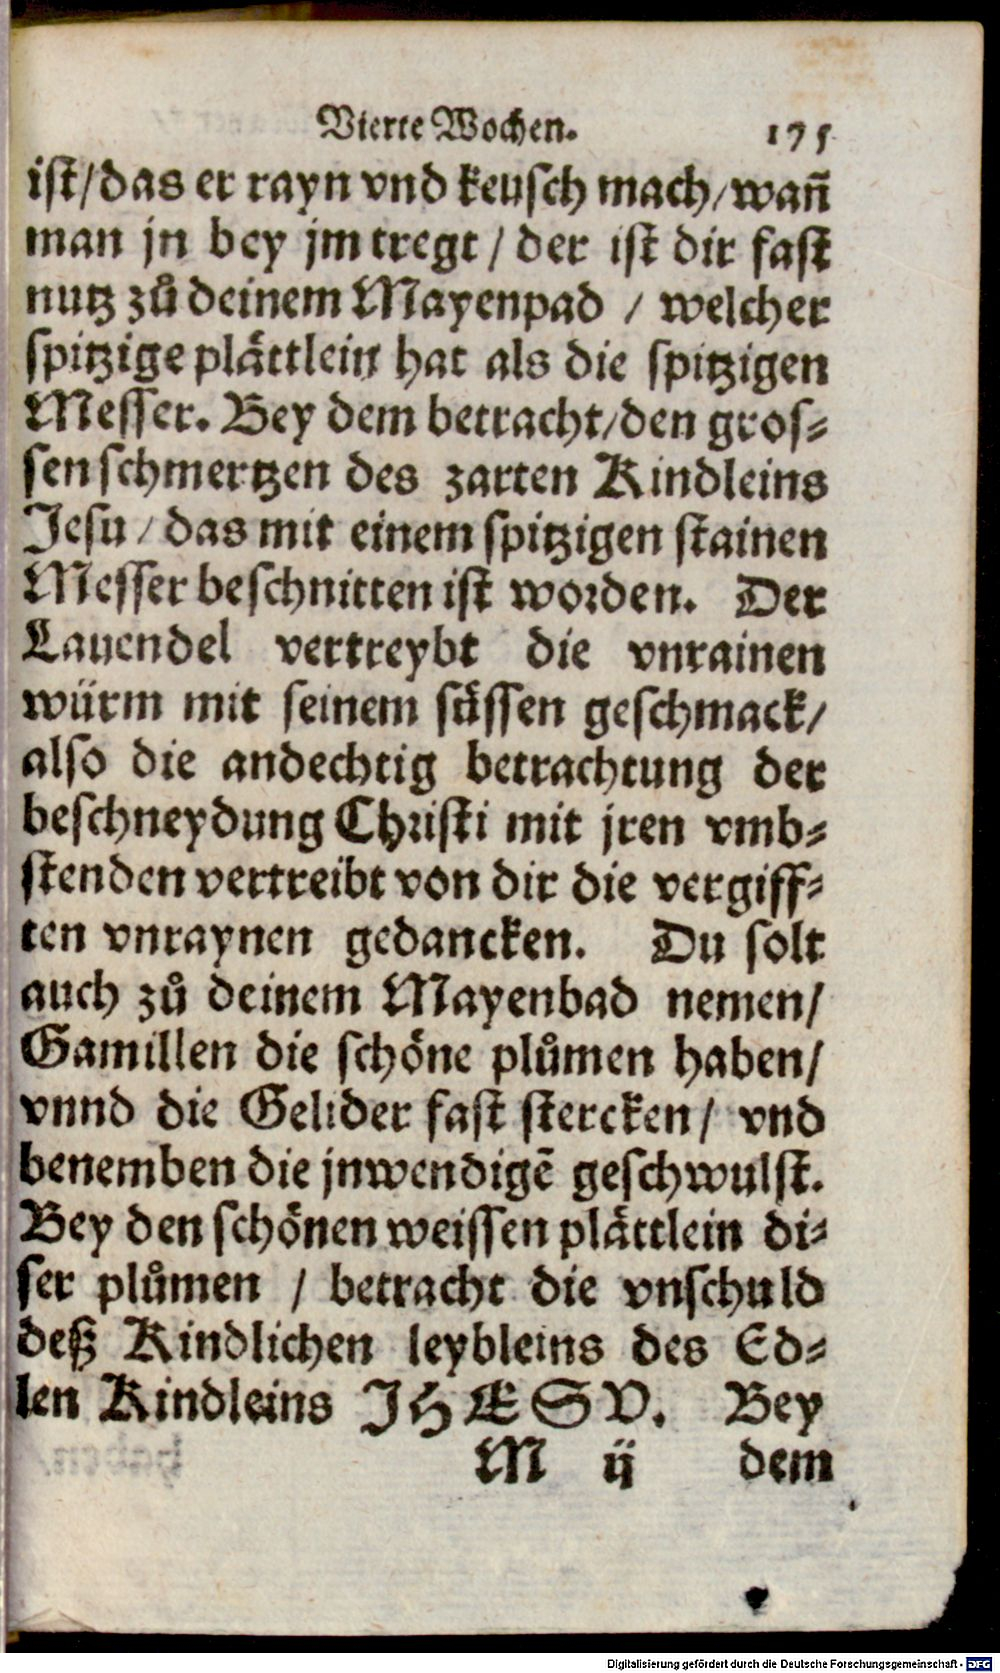 Vierte Wochen. 175
ist/das er rayn vnd keusch mach/wañ
man jn bey jm tregt / der ist dir fast
nutz zů deinem Mayenpad / welcher
spitzige plåttlein hat als die spitzigen
Messer. Bey dem betracht/den gros⸗
sen schmertzen des zarten Kindleins
Jesu / das mit einem spitzigen stainen
Messer beschnitten ist worden. Der
Lauendel vertreybt die vnrainen
würm mit seinem süssen geschmack/
also die andechtig betrachtung der
beschneydung Christi mit jren vmb⸗
stenden vertreibt von dir die vergiff⸗
ten vnraynen gedancken. Du solt
auch zů deinem Mayenbad nemen/
Gamillen die schöne plůmen haben/
vnnd die Gelider fast stercken / vnd
benemben die jnwendigē geschwulst.
Bey den schönen weissen plåttlein di⸗
ser plůmen / betracht die vnschuld
deß Kindlichen leybleins des Ed⸗
len Kindleins JHESV. Bey
M ij dem
Digitalisierung gefördert durch die Deutsche Forschungsgemeinschaft - DFG